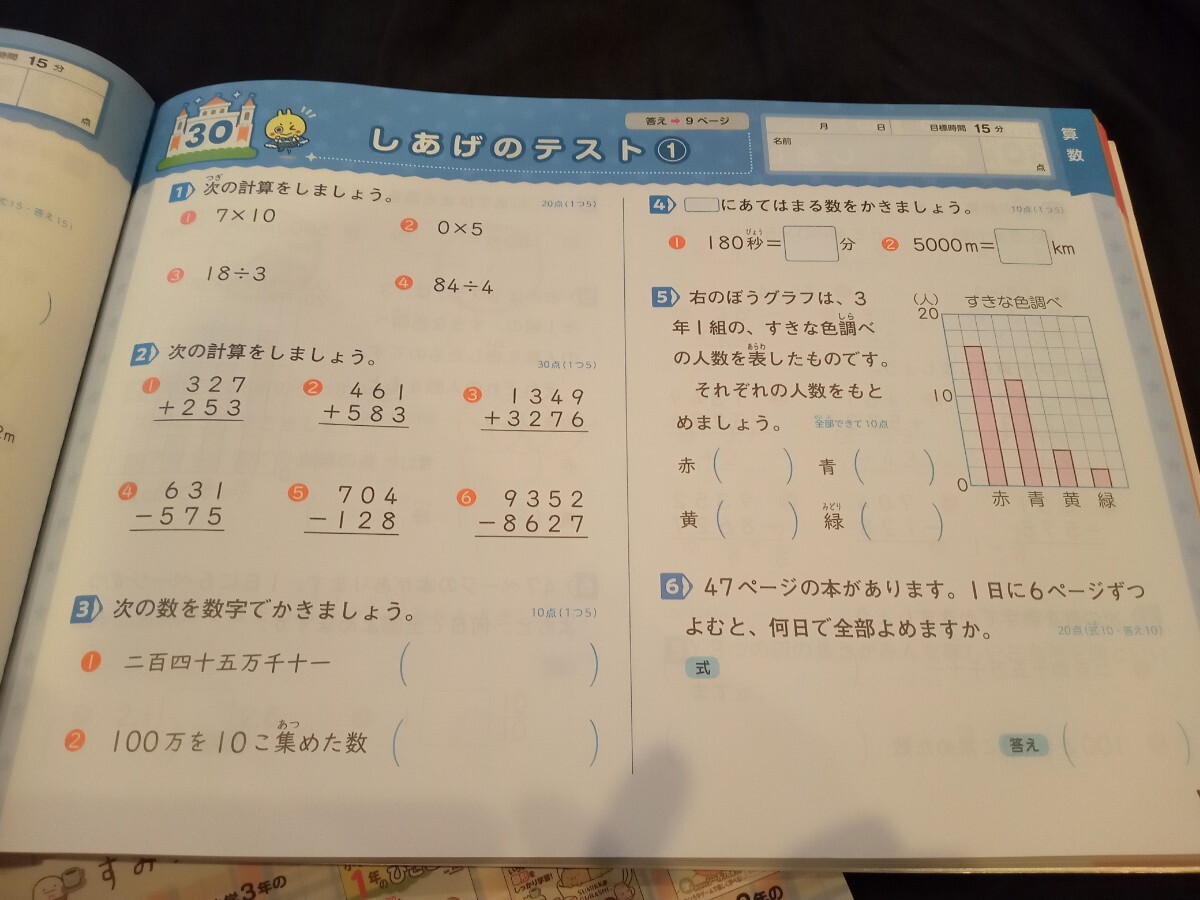 時間 15分
点
式15・答え15)
2m
30
しあげのテスト①
答え➡9ページ
月 日 目標時間 15分
名前
点
算数
1 次の計算をしましょう。
つぎ
20点(1つ5)
❶ 7×10
❷ 0×5
❸ 18÷3
❹ 84÷4
2 次の計算をしましょう。
30点(1つ5)
❶ 327
+253
❷ 461
+583
❸ 1349
+3276
❹ 631
-575
❺ 704
-128
❻ 9352
-8627
3 次の数を数字でかきましょう。
10点(1つ5)
❶ 二百四十五万千十一 ( )
❷ 100万を10こ集めた数 ( )
あつ
4 □にあてはまる数をかきましょう。
10点(1つ5)
❶ 180秒=□分
びょう
❷ 5000m=□km
5 右のぼうグラフは、3
年1組の、すきな色調べ
しら
の人数を表したものです。
あらわ
それぞれの人数をもと
めましょう。
全部できて10点
赤 ( ) 青 ( )
黄 ( ) 緑 ( )
みどり
(人) すきな色調べ
20
10
0
赤 青 黄 緑
6 47ページの本があります。1日に6ページずつ
よむと、何日で全部よめますか。
20点(式10・答え10)
式
答え ( )
すみ
3年の
1年の
しっかり学習!
年の